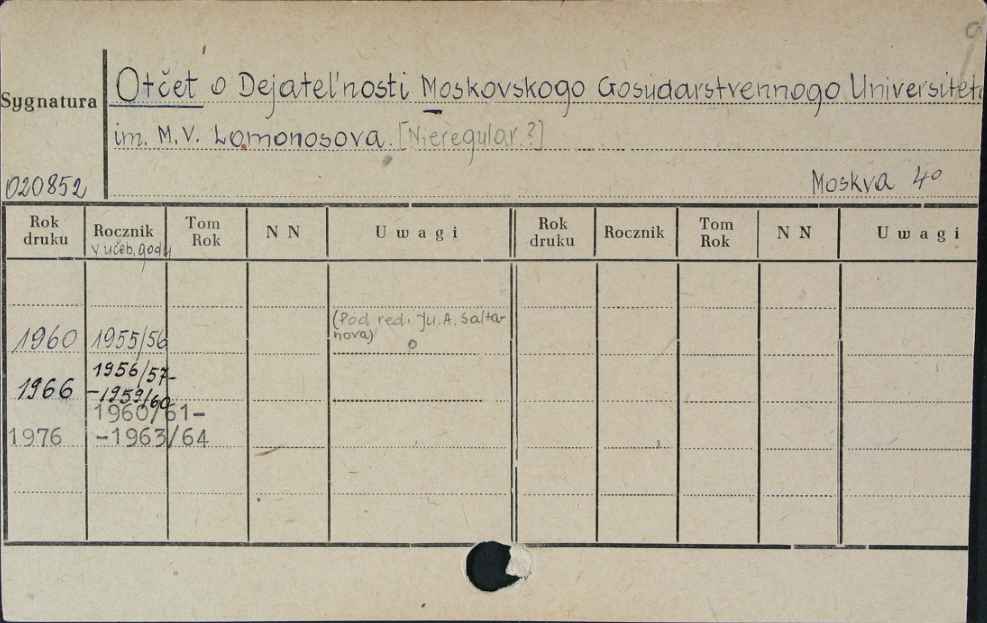 Otčet o Dejatel'nosti Moskovskogo Gosudarstvennogo Universiteta
Sygnatura
im. M.V. Lomonosova. [Nieregular.?]
020852
Moskva 4°
Rok druku Rocznik Tom Rok N N Uwagi Rok druku Rocznik Tom Rok N N Uwagi
v učeb. gody
(Pod red. Ju. A. Salta-
nova)
1960 1955/56
1956/57-
1966 -1959/60
1960/61-
1976 -1963/64